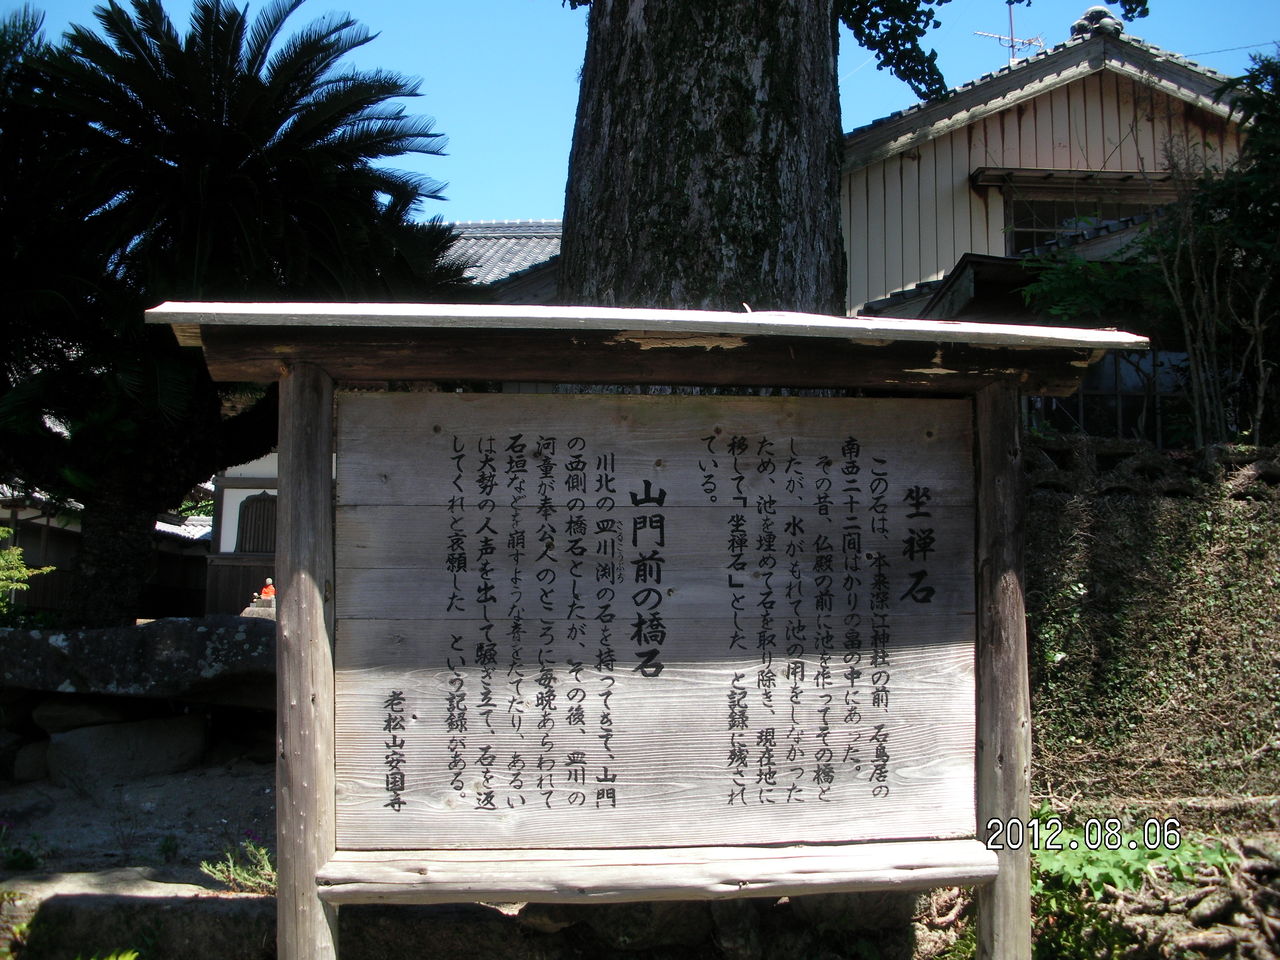 坐禅石
この石は、本来深江神社の前、石鳥居の
南西二十二間ばかりの畠の中にあった。
その昔、仏殿の前に池を作ってその橋と
したが、水がもれて池の用をしなかった
ため、池を埋めて石を取り除き、現在地に
移して「坐禅石」とした と記録に残され
ている。
山門前の橋石
川北の皿川渕の石を持ってきて、山門
の西側の橋石としたが、その後、皿川の
河童が奉公人のところに毎晩あらわれて
石垣などを崩すような音をたてたり、あるい
は大勢の人声を出して騒ぎ立て、石を返
してくれと哀願した という記録がある。
老松山安国寺
2012.08.06